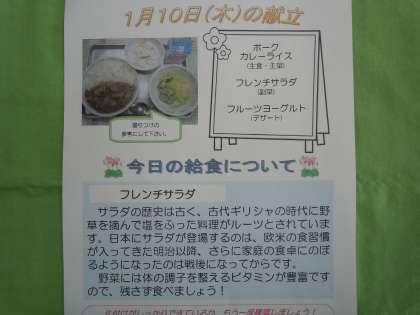 1月10日(木)の献立
ポーク
カレーライス
(主食・主菜)
フレンチサラダ
(副菜)
フルーツヨーグルト
(デザート)
盛りつけの
参考にして下さい。
今日の給食について
フレンチサラダ
サラダの歴史は古く、古代ギリシャの時代に野
草を摘んで塩をふった料理がルーツとされていま
す。日本にサラダが登場するのは、欧米の食習慣
が入ってきた明治以降、さらに家庭の食卓にのぼ
るようになったのは戦後になってからです。
野菜には体の調子を整えるビタミンが豊富です
ので、残さず食べましょう!